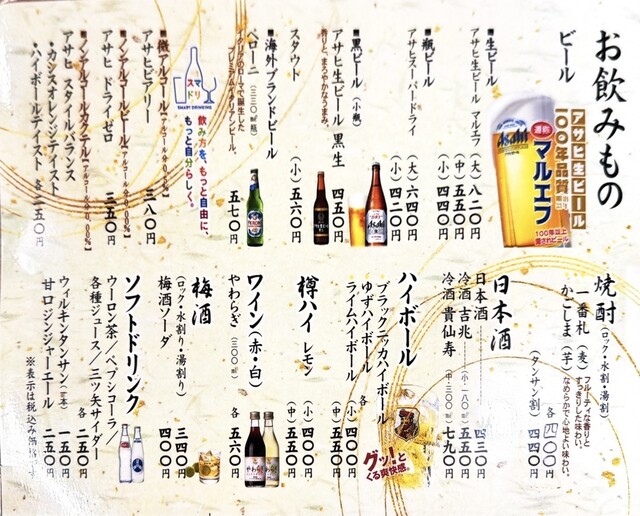 お飲みもの
ビール
アサヒ生ビール
100年品質
通称
マルエフ
100年以上
愛されビール
Asahi
■生ビール
アサヒ生ビール マルエフ (大) 八二〇円
(中) 五五〇円
(小) 四四〇円
■瓶ビール
アサヒスーパードライ (大) 六四〇円
(小) 四二〇円
■黒ビール (小瓶)
アサヒ生ビール 黒生 四五〇円
香りと、まろやかなうまみ。
スタウト (小) 五六〇円
■海外ブランドビール
ペローニ (三三〇㎖瓶) 五七〇円
イタリアのローマで誕生した
プレミアムイタリアンビール。
スマドリ
SMART DRINKING
飲み方を、もっと自由に、
もっと自分らしく。
■微アルコール【アルコール分0.5%】
アサヒビアリー 三八〇円
■ノンアルコールビール【アルコール分0.00%】
アサヒ ドライゼロ 三五〇円
■ノンアルコールカクテル【アルコール分0.00%】
アサヒ スタイルバランス
・カシスオレンジテイスト
・ハイボールテイスト 各 三五〇円
焼酎 (ロック・水割・湯割)
一番札 (麦) フルーティな香りと
すっきりした味わい。
かごしま (芋) なめらかで心地よい味わい。
各 四〇〇円
(タンサン割) 各 四四〇円
日本酒
日本酒 四三〇円
冷酒 吉兆 (小・一八〇㎖) 五五〇円
冷酒 貴仙寿 (中・三〇〇㎖) 七九〇円
ハイボール
ブラックニッカハイボール
ゆずハイボール
ライムハイボール 各 (小) 四〇〇円
(中) 五五〇円
グッ!と
くる爽快感。
樽ハイ レモン (小) 四〇〇円
(中) 五五〇円
ワイン (赤・白)
やわらぎ (三〇〇㎖) 各 五六〇円
梅酒
(ロック・水割り・湯割り) 三四〇円
梅酒ソーダ 四〇〇円
ソフトドリンク
ウーロン茶／ペプシコーラ／
各種ジュース／三ツ矢サイダー 各 二五〇円
ウィルキンタンサン 一五〇円
甘口ジンジャーエール 二五〇円
※表示は税込み価格です